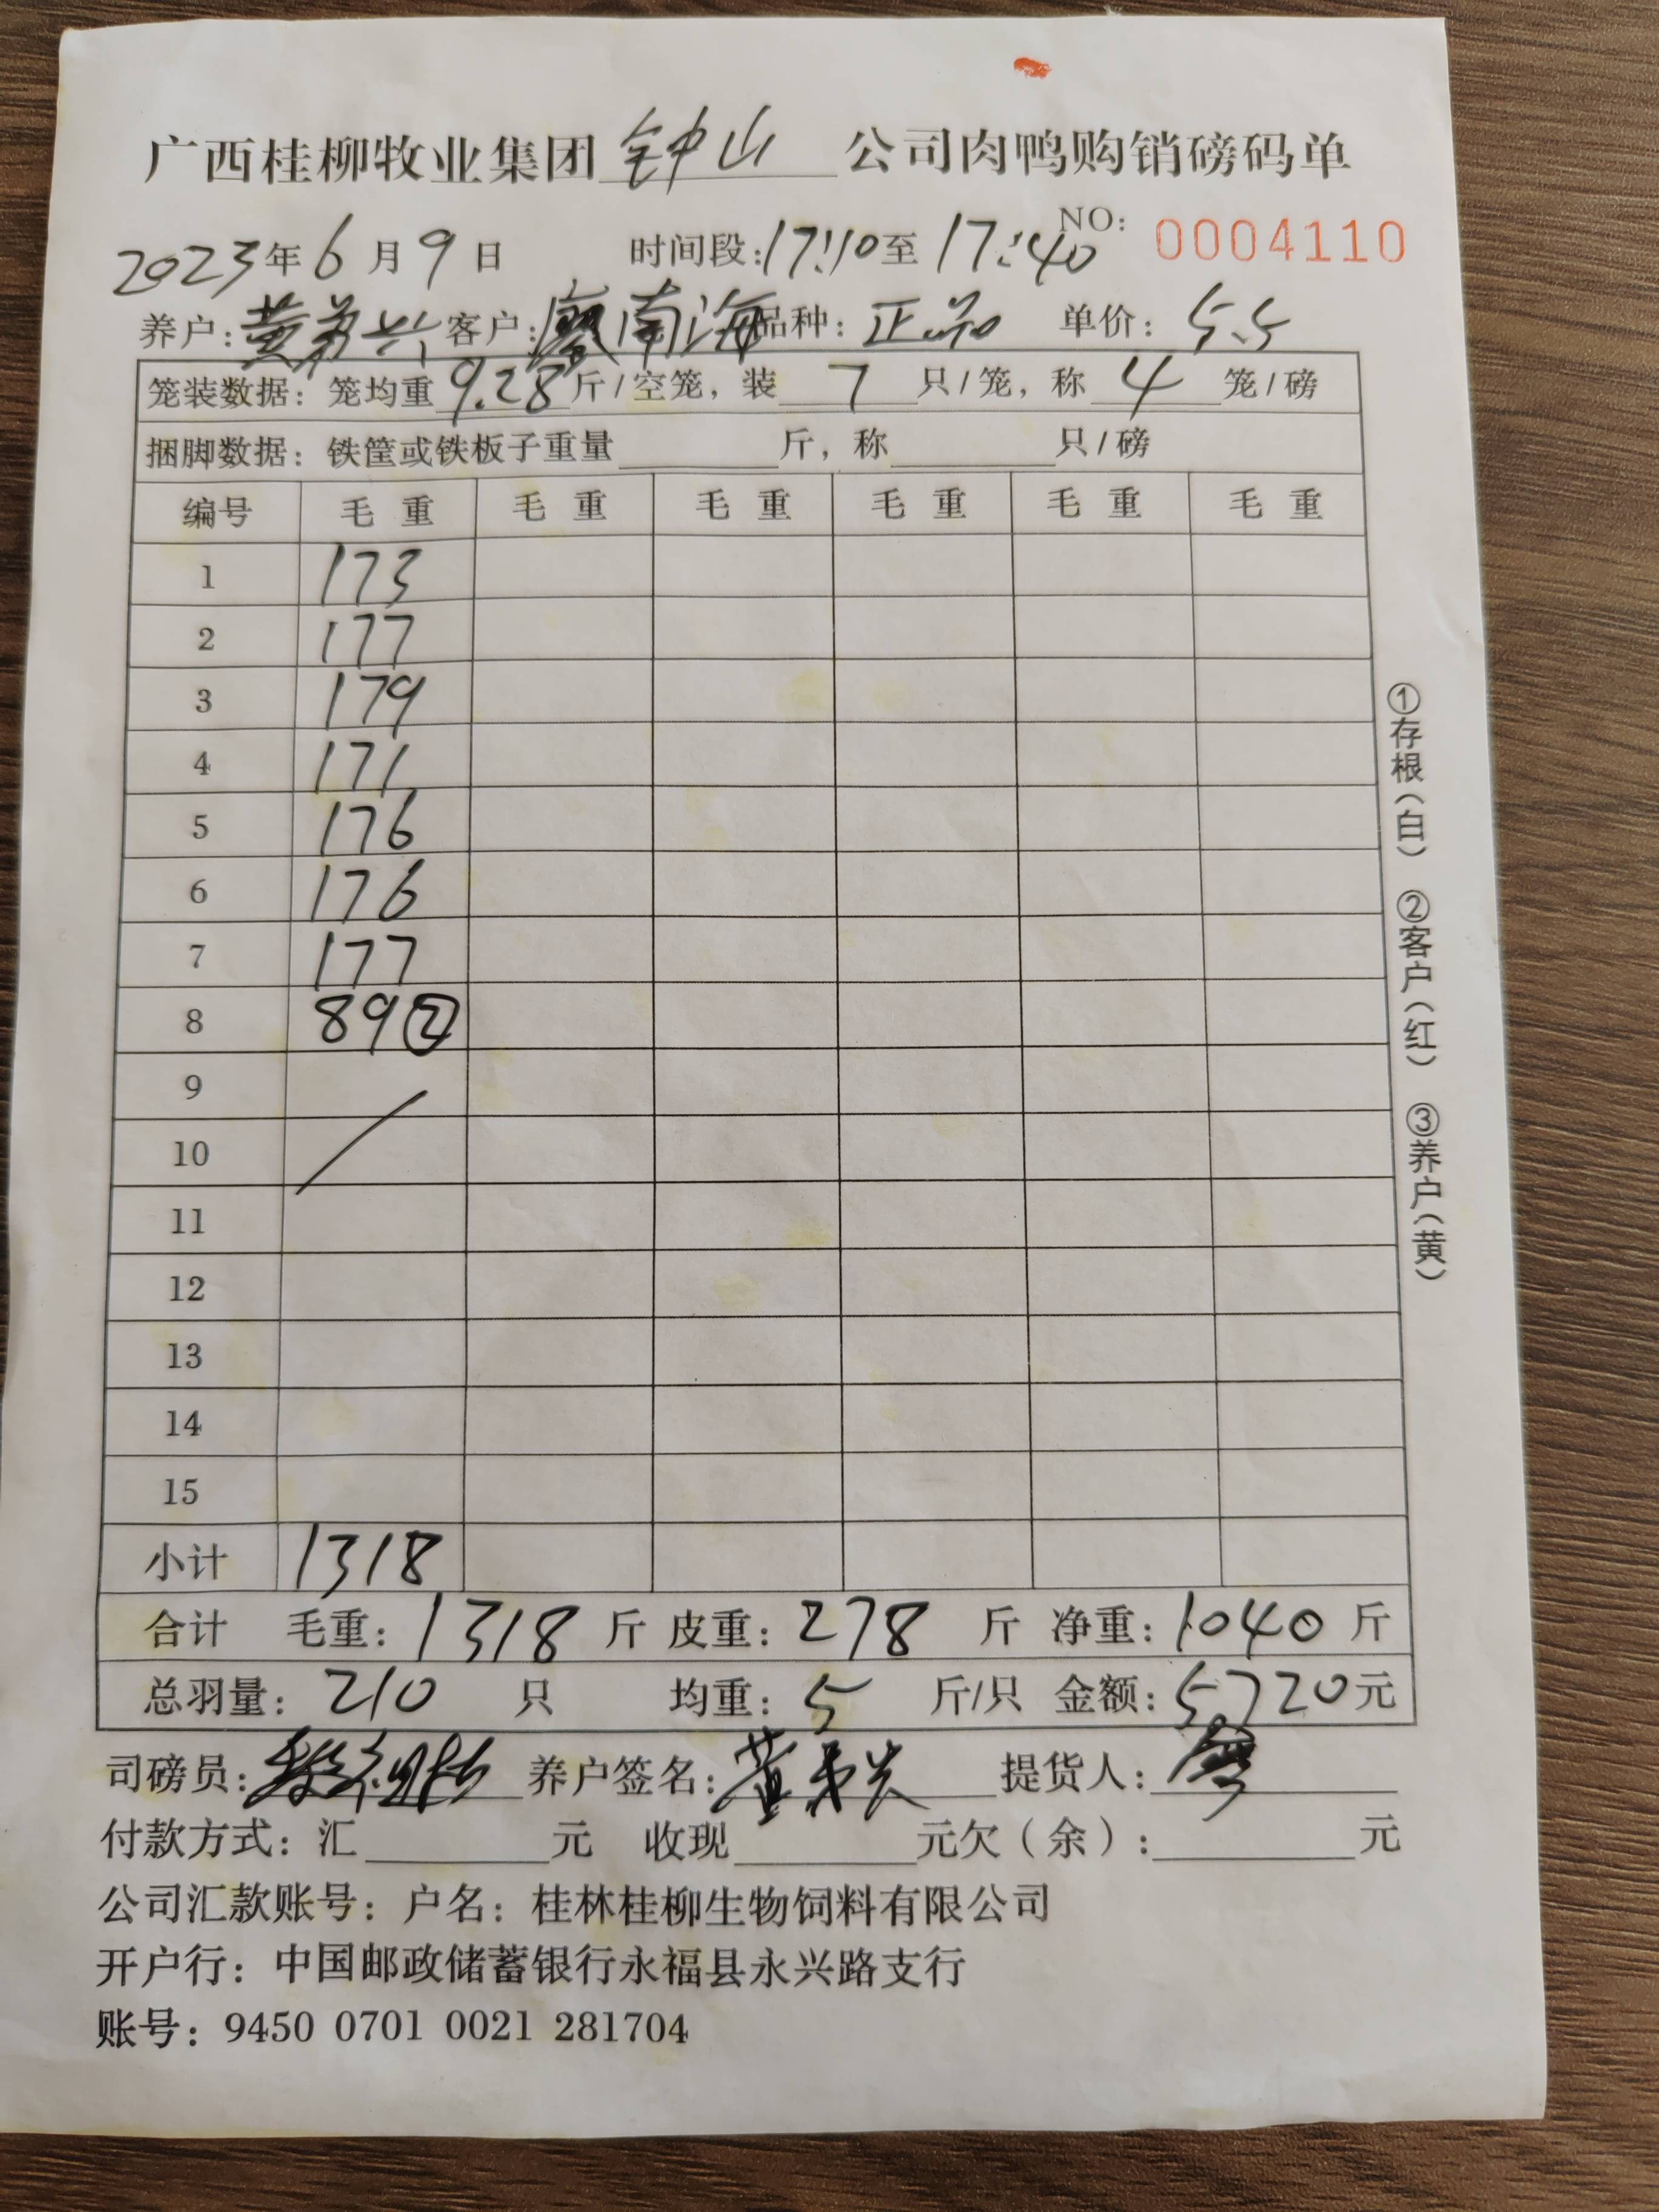 广西桂柳牧业集团 钟山 公司肉鸭购销磅码单
NO: 0004110
2023年6月9日 时间段:17:10至17:40
养户:黄弟兴 客户:廖南海 品种:正品 单价:5.5
笼装数据:笼均重9.28斤/空笼,装7只/笼,称4笼/磅
捆脚数据:铁筐或铁板子重量____斤,称____只/磅
编号 毛重 毛重 毛重 毛重 毛重 毛重
1 173
2 177
3 179
4 171
5 176
6 176
7 177
8 89②
9
10
11
12
13
14
15
小计 1318
合计 毛重:1318斤 皮重:278斤 净重:1040斤
总羽量:210只 均重:5斤/只 金额:5720元
司磅员: 养户签名:黄弟兴 提货人:廖
付款方式:汇____元 收现____元欠(余):____元
公司汇款账号:户名:桂林桂柳生物饲料有限公司
开户行:中国邮政储蓄银行永福县永兴路支行
账号:9450 0701 0021 281704
①存根(白) ②客户(红) ③养户(黄)